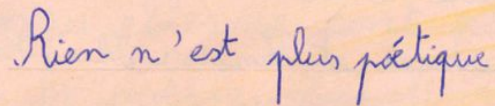 Rien n'est plus poétique